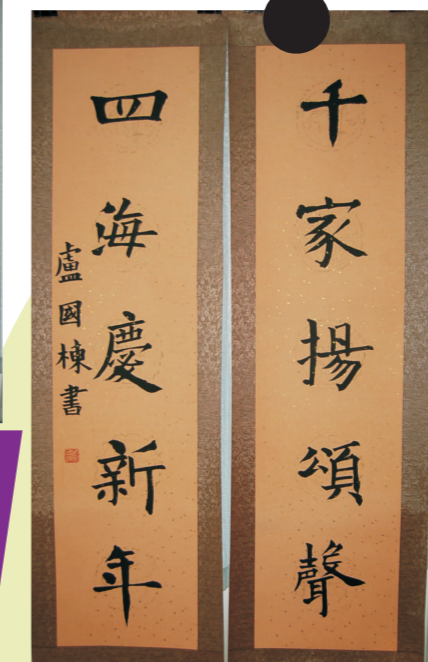 千家揚頌聲
四海慶新年
盧國棟書